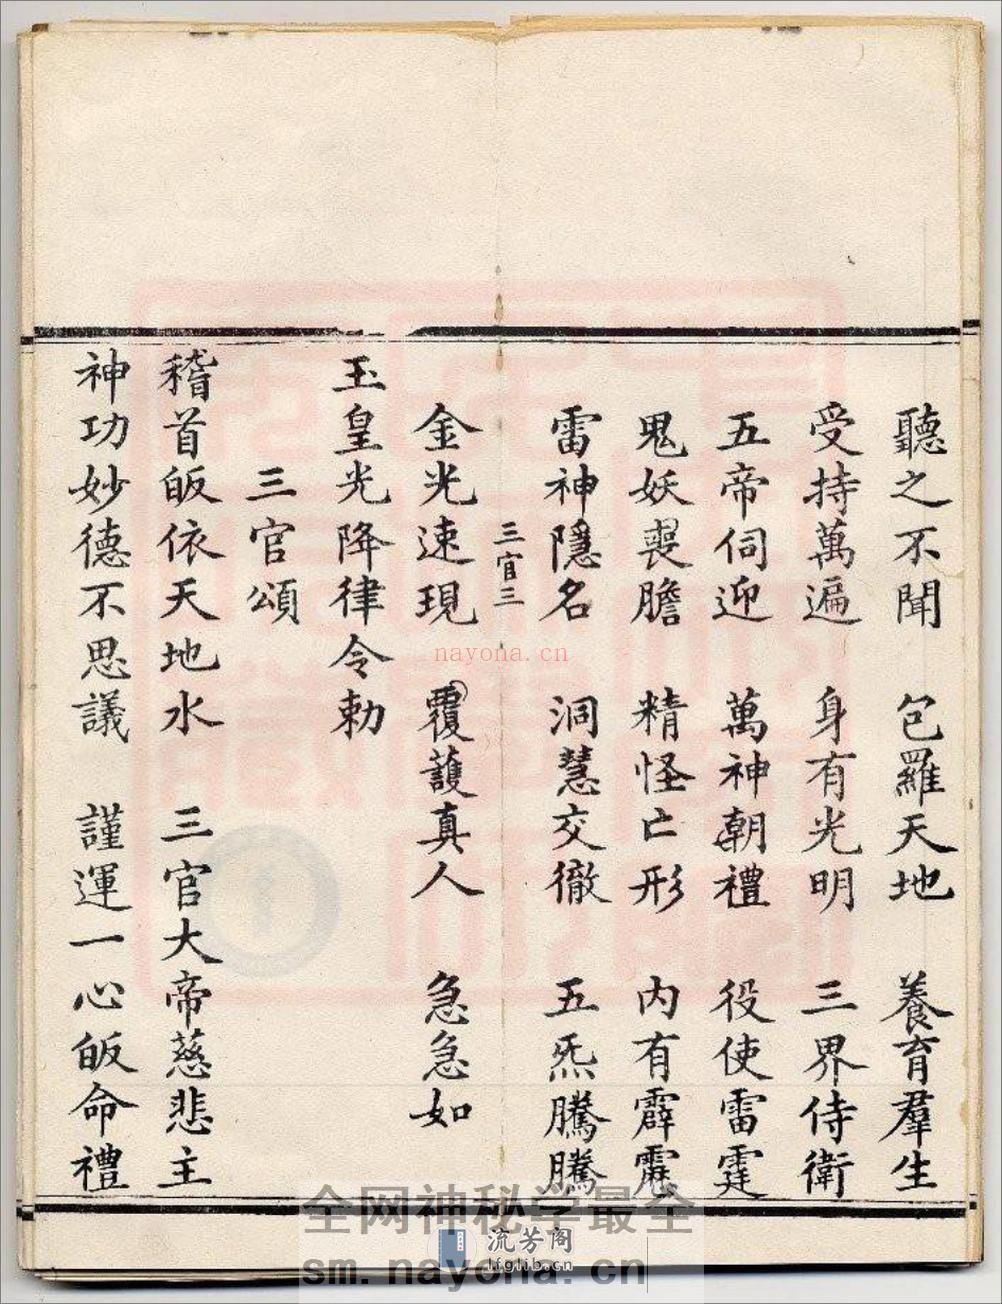 聽之不聞　包羅天地　養育羣生
受持萬遍　身有光明　三界侍衛
五帝伺迎　萬神朝禮　役使雷霆
鬼妖喪膽　精怪亡形　內有霹靂
雷神隱名　洞慧交徹　五炁騰騰
三官三
金光速現　覆護真人　急急如
玉皇光降律令勅
三官頌
稽首皈依天地水　三官大帝慈悲主
神功妙德不思議　謹運一心皈命禮
nayona.cn
全网神秘学最全
流芳阁
lfglib.cn
sm.nayona.cn